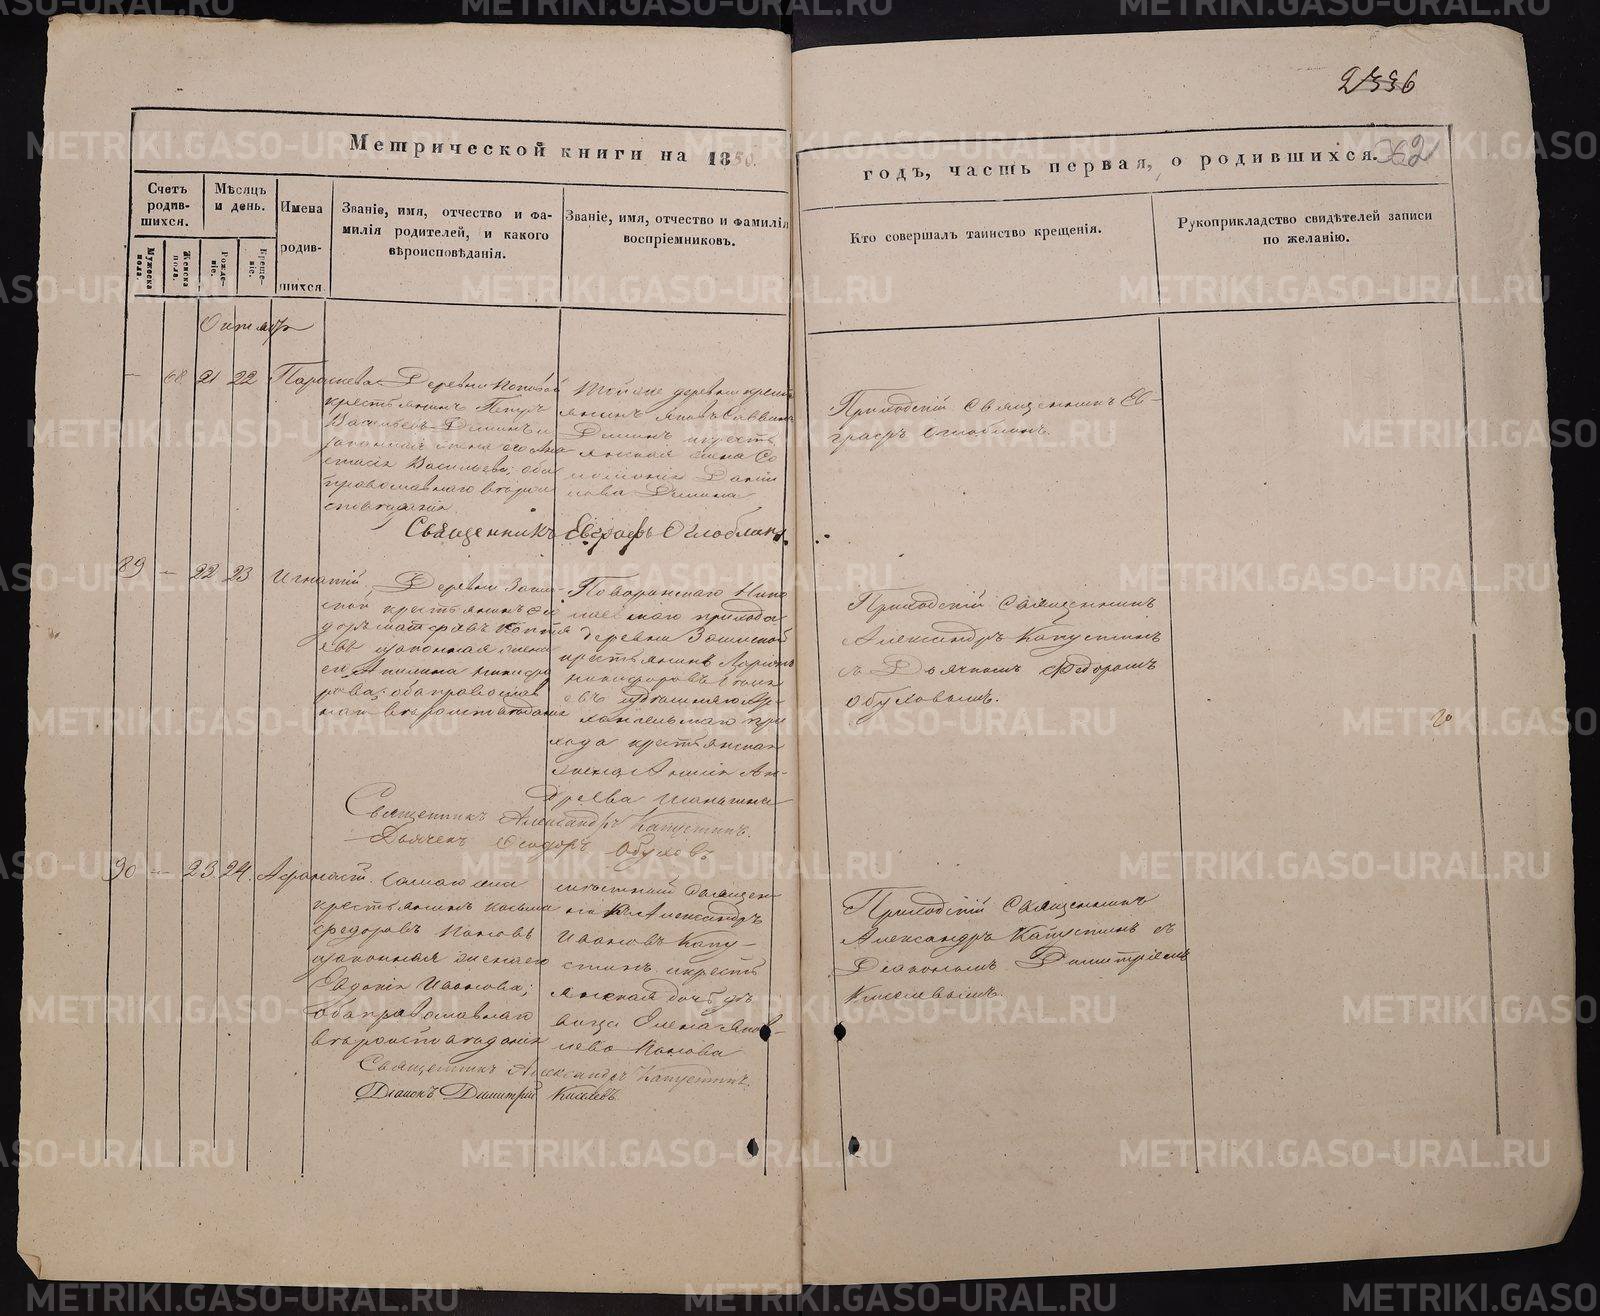 2336
Метрической книги на 1850.
годъ, часть первая, о родившихся.
362
Счетъ родив-шихся.
Мѣсяцъ и день.
Имена родив-шихся.
Званіе, имя, отчество и фа-
милія родителей, и какого
вѣроисповѣданія.
Званіе, имя, отчество и фамилія
воспріемниковъ.
Кто совершалъ таинство крещенія.
Рукоприкладство свидѣтелей записи
по желанію.
Мужеска пола.
Женска пола.
Рожде-ніе.
Креще-ніе.
Октябрь
— 68 21 22 Параскева
Деревни Поповой
крестьянинъ Петръ
Васильевъ Деминъ и
законная жена его Ана
стасія Васильева; оба
православнаго вѣрои
сповѣданія.
Тойже деревни крест
янинъ Яковъ Саввинъ
Деминъ и крестъ
янская жена Со
ломонія Дани
лова Демина
Приходскій Священникъ Ев-
графъ Оглоблинъ.
Священникъ Евграфъ Оглоблинъ.
89 — 22 23 Игнатій
Деревни
крестьянинъ
законная жена
его Акилина Никифо
рова; оба православ
наго вѣроисповѣданія
Поваренскаго Нико
лаевскаго прихода
деревни
крестьянинъ Ларіонъ
Никифоровъ
Ар-
хангельскаго при
хода крестьянская
жена Анисія Ан-
дреева
Приходскій Священникъ
Александръ Капустинъ
съ Дьячкомъ Ѳедоромъ
Обуховымъ.
Священникъ Александръ Капустинъ.
Дьячекъ Ѳеодоръ Обуховъ.
90 — 23 24. Афанасій.
крестьянинъ Козьма
Федоровъ Поповъ
законная жена его
Евдокія Иванова;
оба православнаго
вѣроисповѣданія
мѣстный Священ-
никъ Александръ
Ивановъ Капу-
стинъ и крестъ
янская дочь дѣ
вица Елена Яков-
лева Попова
Приходскій Священникъ
Александръ Капустинъ съ
Діакономъ Димитріемъ
Киселевымъ.
Священникъ Александръ Капустинъ.
Діаконъ Димитрій Киселевъ.
METRIKI.GASO-URAL.RU